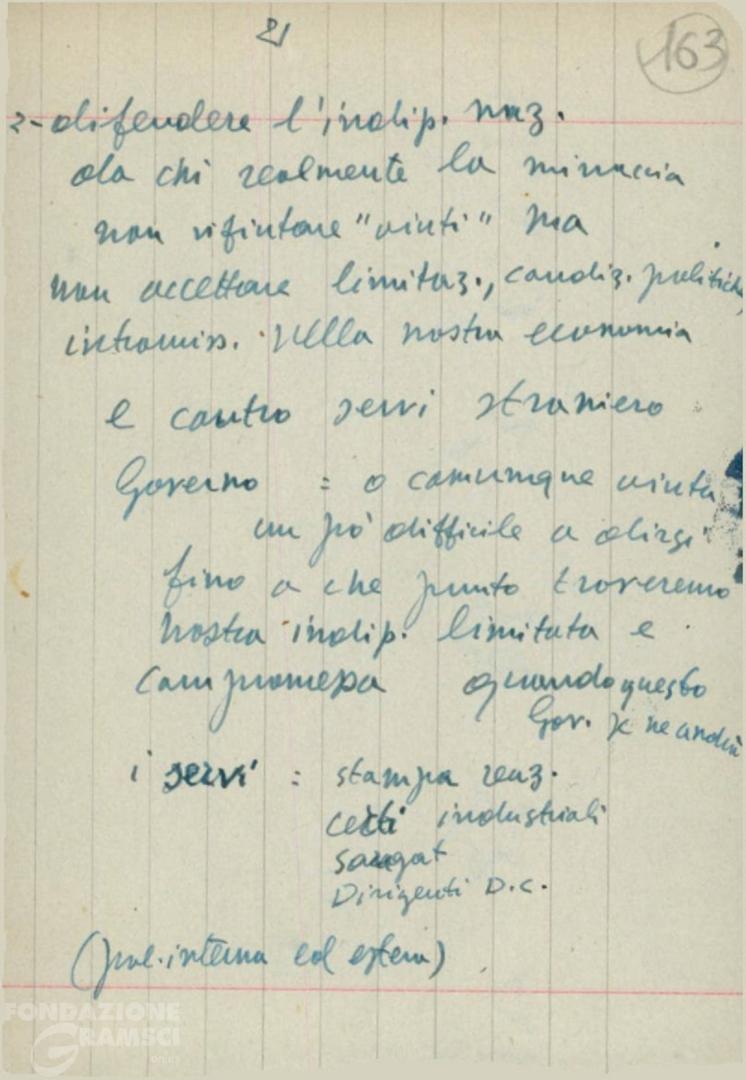 21
163
2- difendere l'indip. naz.
da chi realmente la minaccia
non rifiutare "aiuti" ma
non accettare limitaz., condiz. politiche,
intromiss. nella nostra economia
e contro servi straniero
Governo : o comunque aiuta
un pò difficile a dirsi
fino a che punto troveremo
nostra indip. limitata e
compromessa quando questo
Gov. se ne andrà
i servi : stampa reaz.
certi industriali
saragat
Dirigenti D.C.
(pol. interna ed estera)
FONDAZIONE
GRAMSCI
onlus